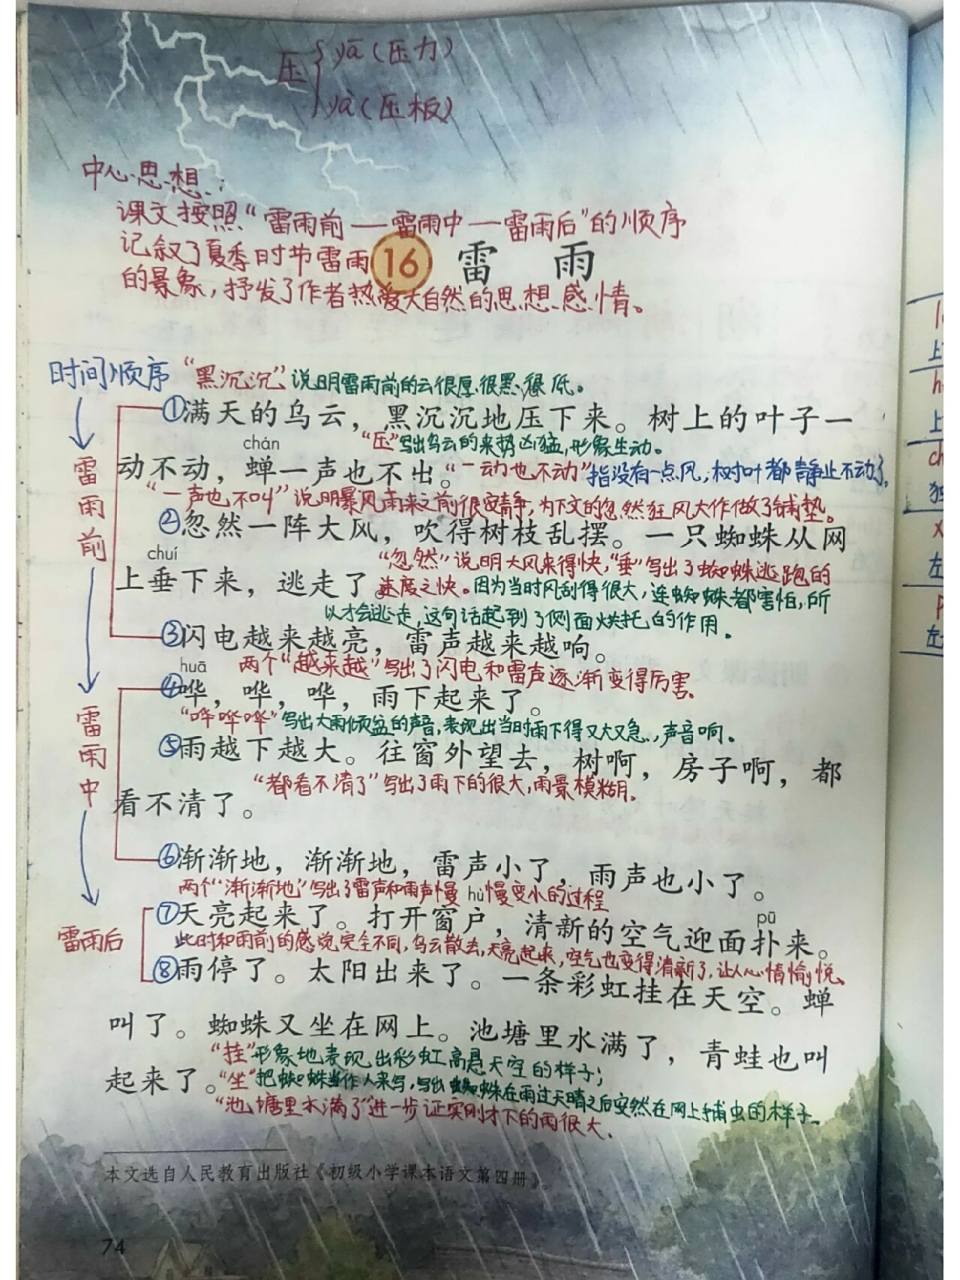 压{yā(压力)
yà(压板)
中心思想:
课文按照“雷雨前—雷雨中—雷雨后”的顺序
记叙了夏季时节雷雨
的景象,抒发了作者热爱大自然的思想感情。
16 雷雨
时间顺序 “黑沉沉”说明雷雨前的云很厚很黑很低。
①满天的乌云,黑沉沉地压下来。树上的叶子一
“压”写出乌云的来势凶猛,形象生动。
chán
动不动,蝉一声也不出。“一动也不动”指没有一点风,树叶都静止不动了。
“一声也不叫”说明暴风雨来之前很安静,为下文的忽然狂风大作做了铺垫。
雷雨前
②忽然一阵大风,吹得树枝乱摆。一只蜘蛛从网
chuí
“忽然”说明大风来得快,“垂”写出了蜘蛛逃跑的
上垂下来,逃走了。
速度之快。因为当时风刮得很大,连蜘蛛都害怕,所
以才会逃走,这句话起到了侧面烘托的作用。
③闪电越来越亮,雷声越来越响。
两个“越来越”写出了闪电和雷声逐渐变得厉害。
huā
④哗,哗,哗,雨下起来了。
“哗哗哗”写出大雨倾盆的声音,表现出当时雨下得又大又急,声音响。
雷雨中
⑤雨越下越大。往窗外望去,树啊,房子啊,都
“都看不清了”写出了雨下的很大,雨景模糊。
看不清了。
⑥渐渐地,渐渐地,雷声小了,雨声也小了。
两个“渐渐地”写出了雷声和雨声慢慢变小的过程
hù
雷雨后
⑦天亮起来了。打开窗户,清新的空气迎面扑来。
pū
此时和雨前的感觉完全不同,乌云散去,天亮起来,空气也变得清新了,让人心情愉悦。
⑧雨停了。太阳出来了。一条彩虹挂在天空。蝉
叫了。蜘蛛又坐在网上。池塘里水满了,青蛙也叫
“挂”形象地表现出彩虹高悬天空的样子;
起来了。“坐”把蜘蛛当作人来写,写出蜘蛛在雨过天晴之后安然在网上捕虫的样子。
“池塘里水满了”进一步证实刚才下的雨很大。
本文选自人民教育出版社《初级小学课本语文第四册》。
74